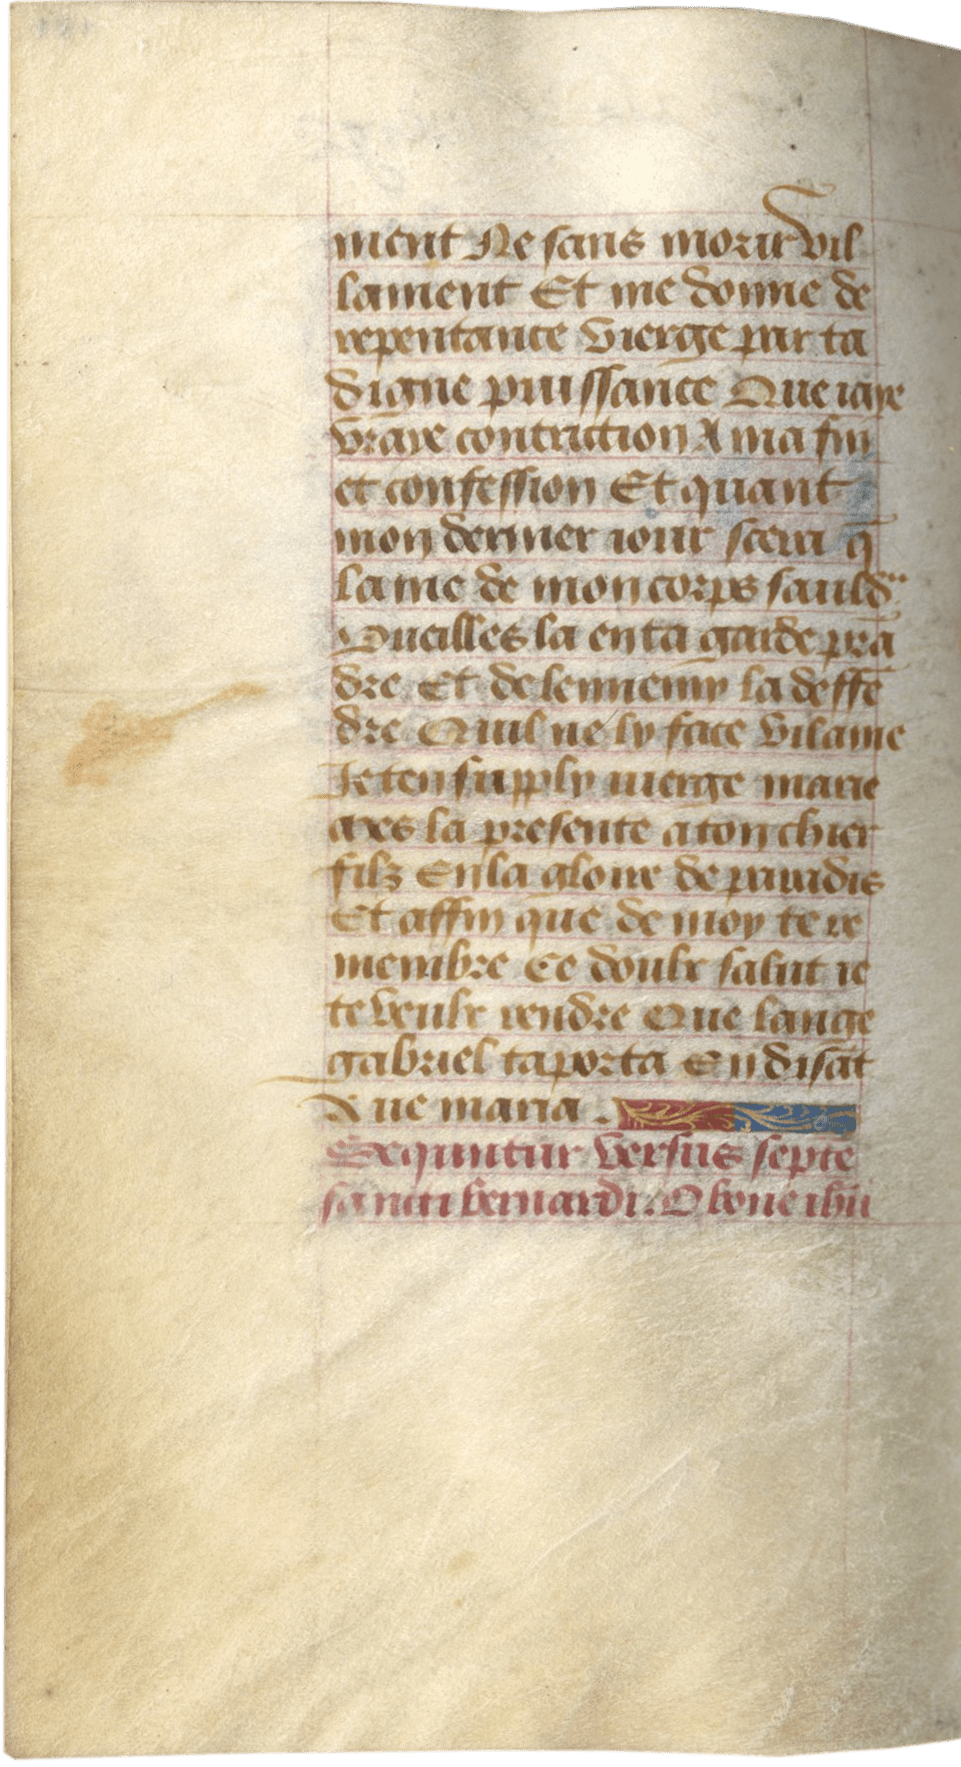 ment Ne sans morir vil
lament Et me donne de
repentance Vierge par ta
digne puissance Que iaye
vraye contriction A ma fin
et confession Et quant
mon dernier iour scera q̄
lame de mon corps sauldra
Vueilles la en ta garde prā
dre Et de lennemy la deffē
dre Quil ne ly face vilanie
Je ten supply vierge marie
aies la presente a ton chier
filz En la gloire de paradis
Et affin que de moy te re
membre Ce doulx salut ie
te veulx rendre Que lange
gabriel taporta En disāt
Aue maria .
Sequntur versus septē
sancti bernardi. O bone ihū